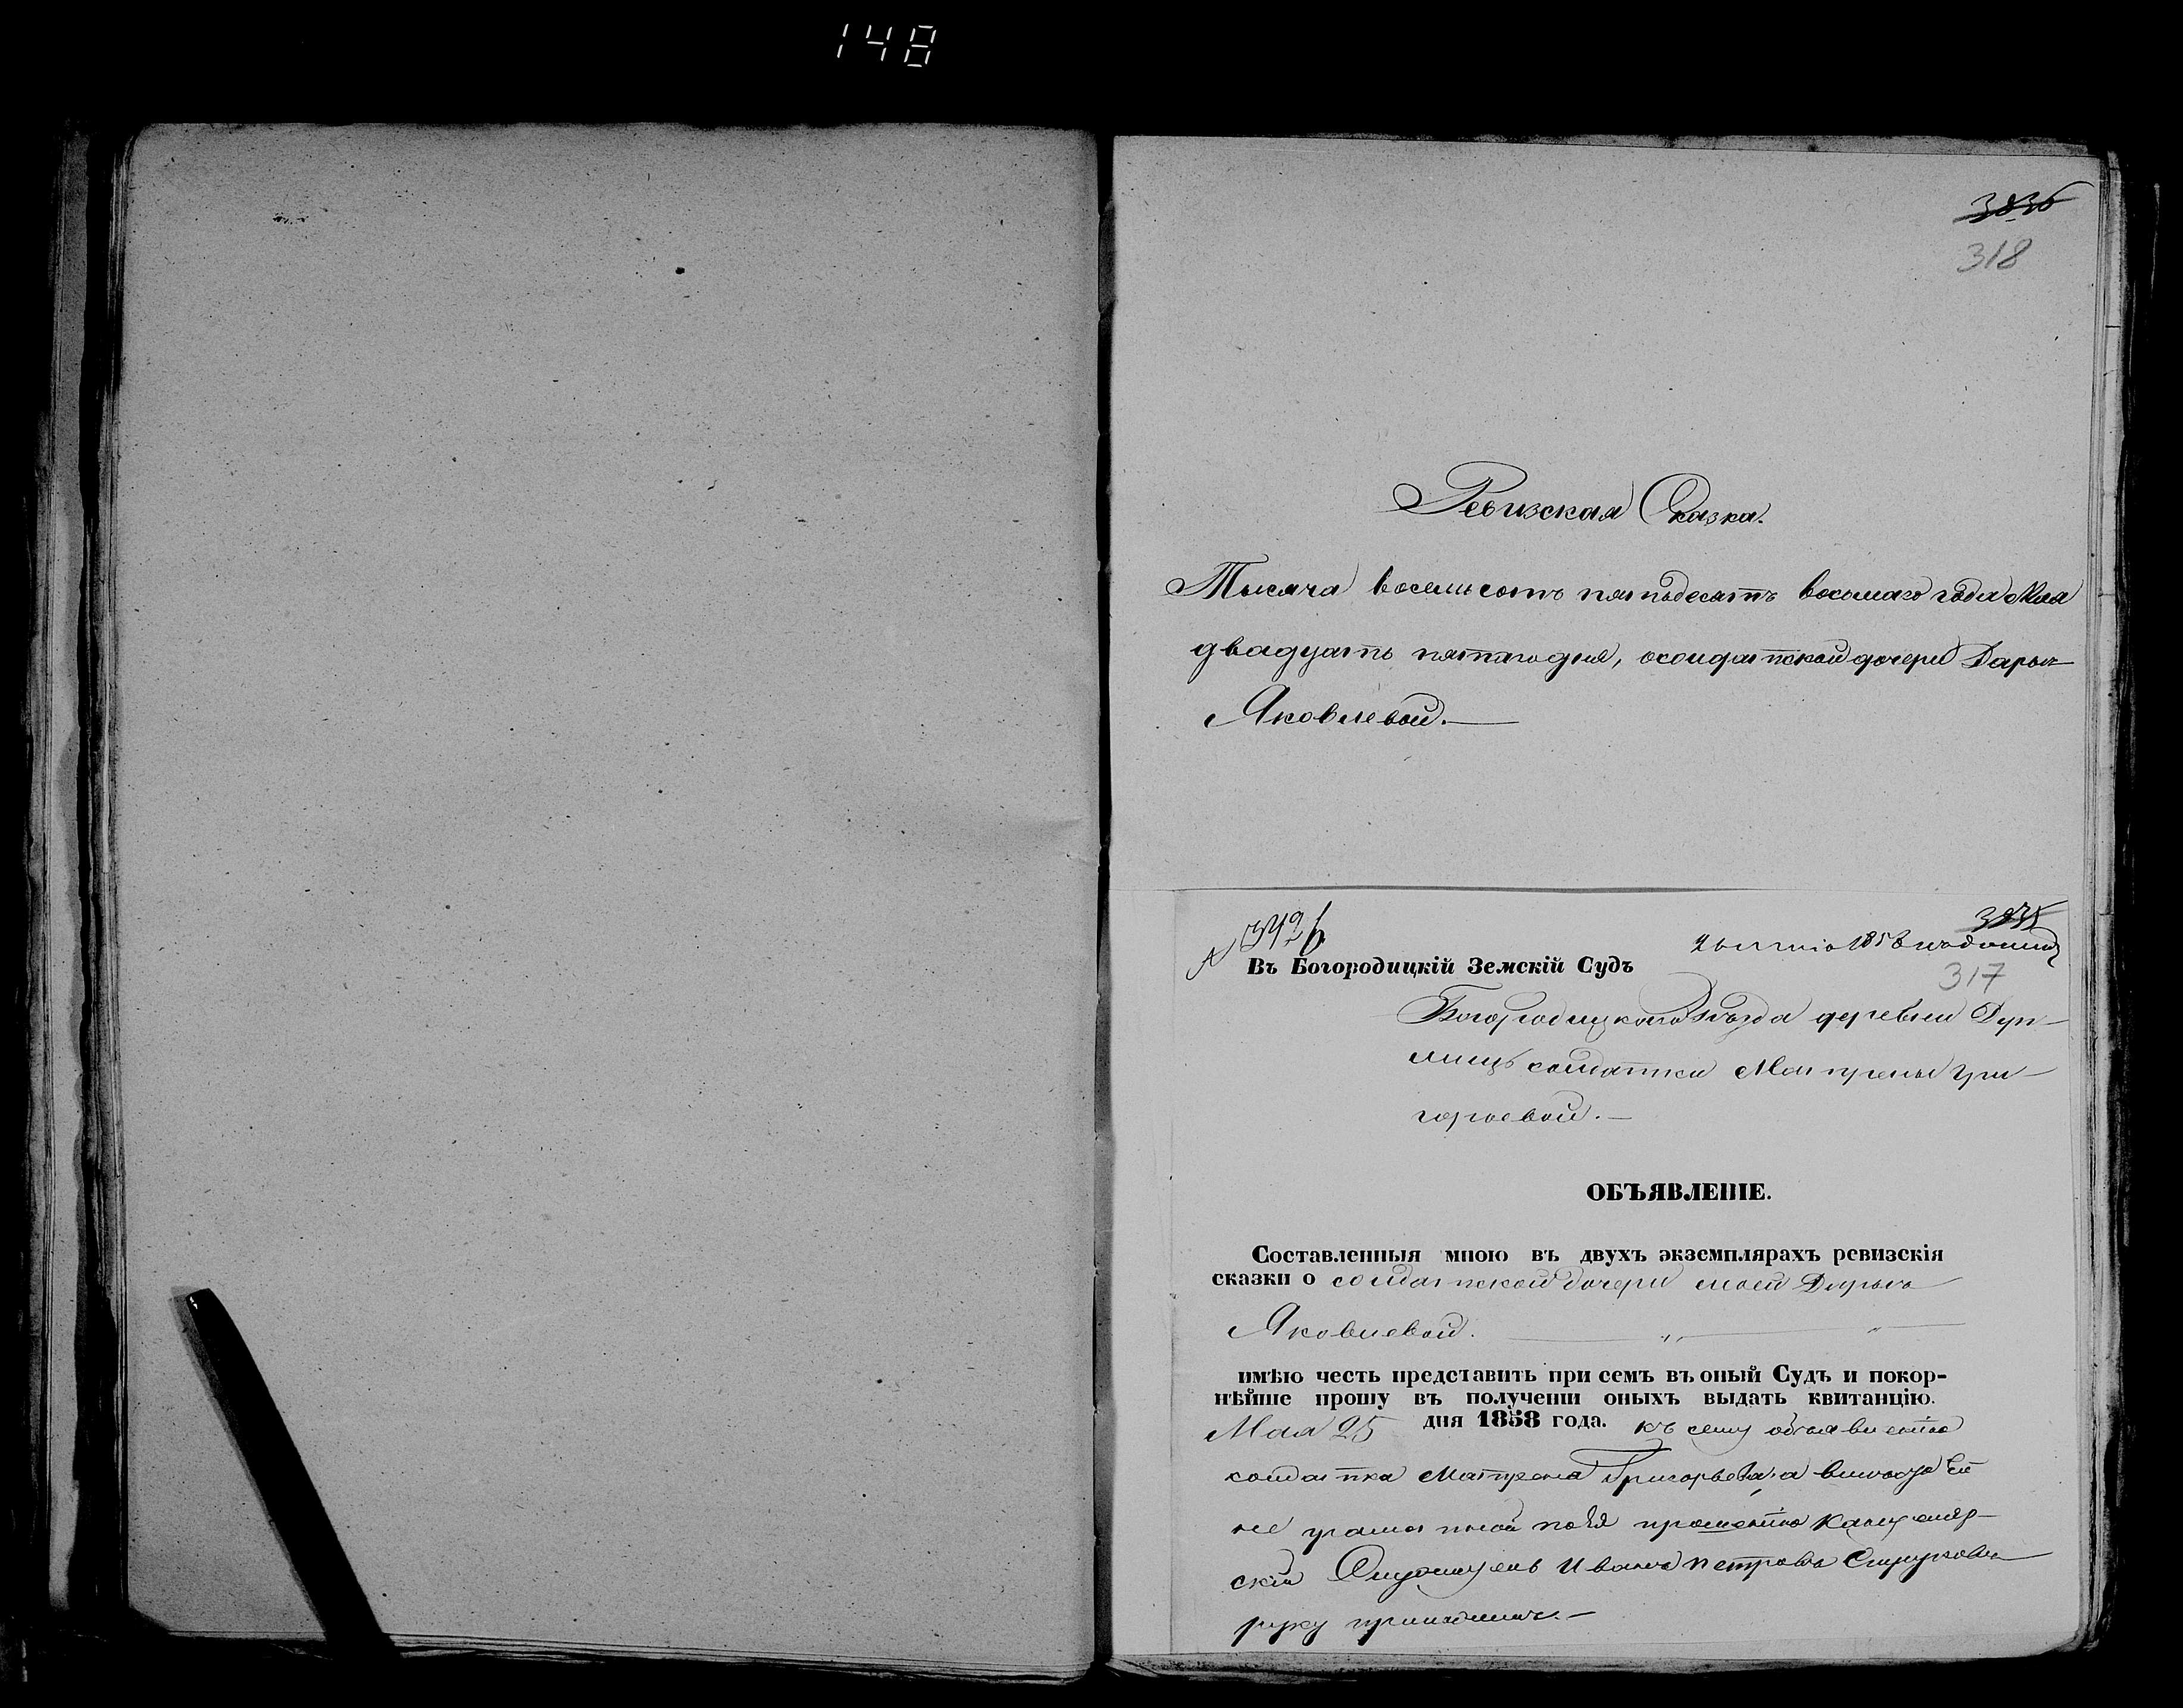 148
3836
318
Ревизская Сказка.
Тысяча восемьсотъ пятьдесятъ восьмаго года Мая
двадцать пятаго дня, о солдатской дочери Дарьи
Яковлевой.—
№ 3426
3835
1858
Въ Богородицкій Земскій Судъ
317
Богородицкаго Уѣзда деревни
солдатки Матрены Гри-
горьевой.—
ОБЪЯВЛЕНІЕ.
Составленныя мною въ двухъ экземплярахъ ревизскія
сказки о солдатской дочери моей Дарьѣ
Яковлевой.
имѣю честь представить при семъ въ оный Судъ и покор-
нѣйше прошу въ полученіи оныхъ выдать квитанцію.
Мая 25 дня 1858 года. къ сему объявленію
солдатка Матрена Григорьева, а вмѣсто ея
не грамотной по ея прошенію Канцеляр-
скій Служитель Иванъ Петровъ
руку приложилъ.—